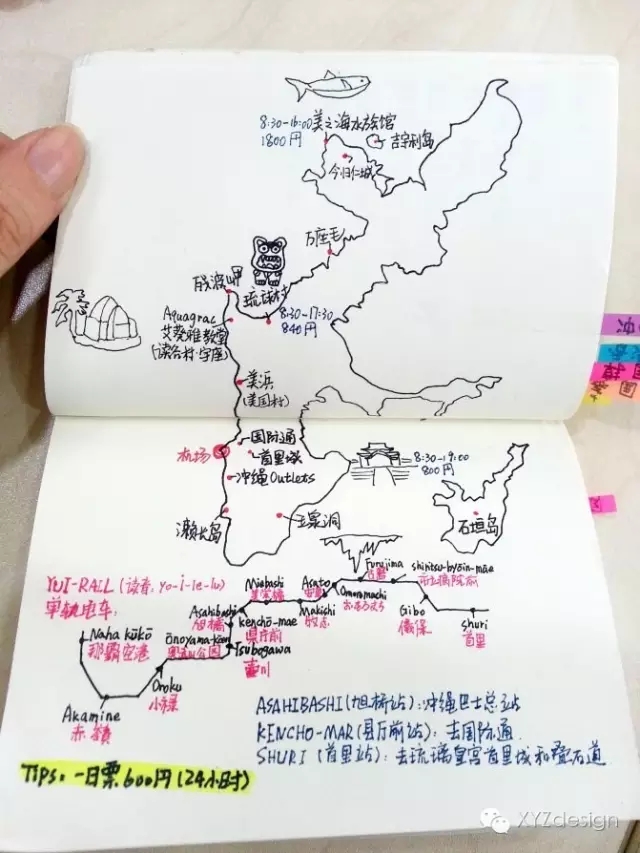 8:30-16:00 美之海水族馆
1800円
吉宇利岛
今归仁城
万座毛
残波岬
琉球村
8:30-17:30
840円
Aquagrac
艾葵雅教堂
(读谷村·宇座)
美浜
(美国村)
国际通
首里城
机场
冲绳Outlets
8:30-19:00
800円
濑长岛
玉泉洞
石垣岛
YUI-RAIL (读者: yo-i-le-lu)
单轨电车:
Naha kūkō
那霸空港
Akamine
赤嶺
Oroku
小禄
ōnoyama-kōen
奥武山公园
Tsubogawa
壶川
Asahibashi
旭橋
kenchō-mae
県庁前
Miebashi
美栄橋
Makishi
牧志
Asato
安里
Omoromachi
おもろまち
Furujima
古島
shiritsu-byōin-mae
市立病院前
Gibo
儀保
shuri
首里
ASAHIBASHI (旭桥站): 冲绳巴士总站
KENCHO-MAR (县厅前站): 去国际通
SHURI (首里站): 去琉璃皇宫首里城和叠石道
TIPS: 一日票600円 (24小时)
XYZdesign